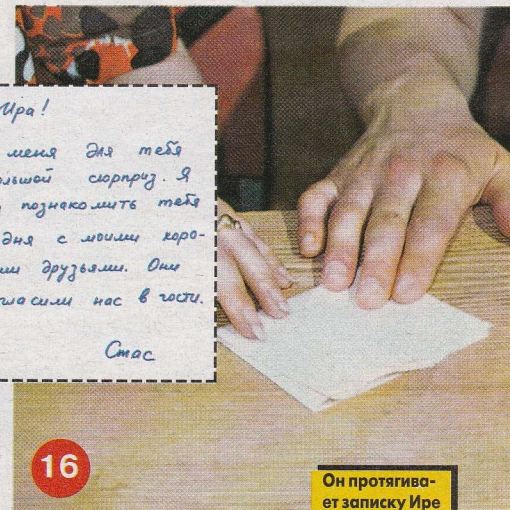 Ира!
меня для тебя
ольшой сюрприз. Я
познакомить тебя
дня с моими хоро-
ими друзьями. Они
гласили нас в гости.
Стас
16
Он протягива-
ет записку Ире